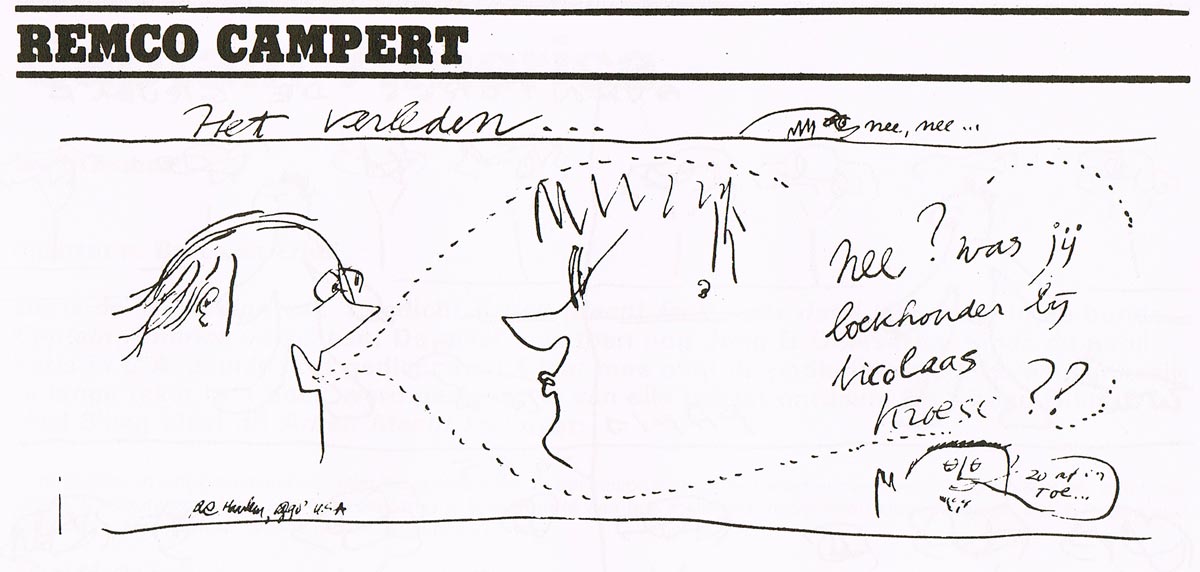 REMCO CAMPERT
Het verleden...
nee, nee...
nee? was jij
boekhouder bij
Nicolaas
Kroese ??
20 af in
TOE...
U.S.A